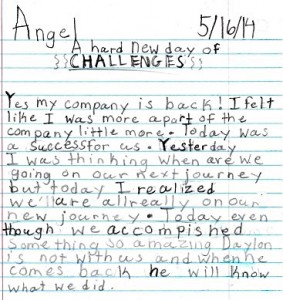 Angel 5/16/14
A hard new day of
{{CHALLENGES}}
Yes my company is back! I felt
like I was more apart of the
company little more. Today was
a successfor us. Yesterday
I was thinking when are we
going on our next journey
but today I realized
we'll are allready on our
new journey. Today even
though we accompished
something so amazing Daylon
is not with us and when he
comes back he will know
what we did.